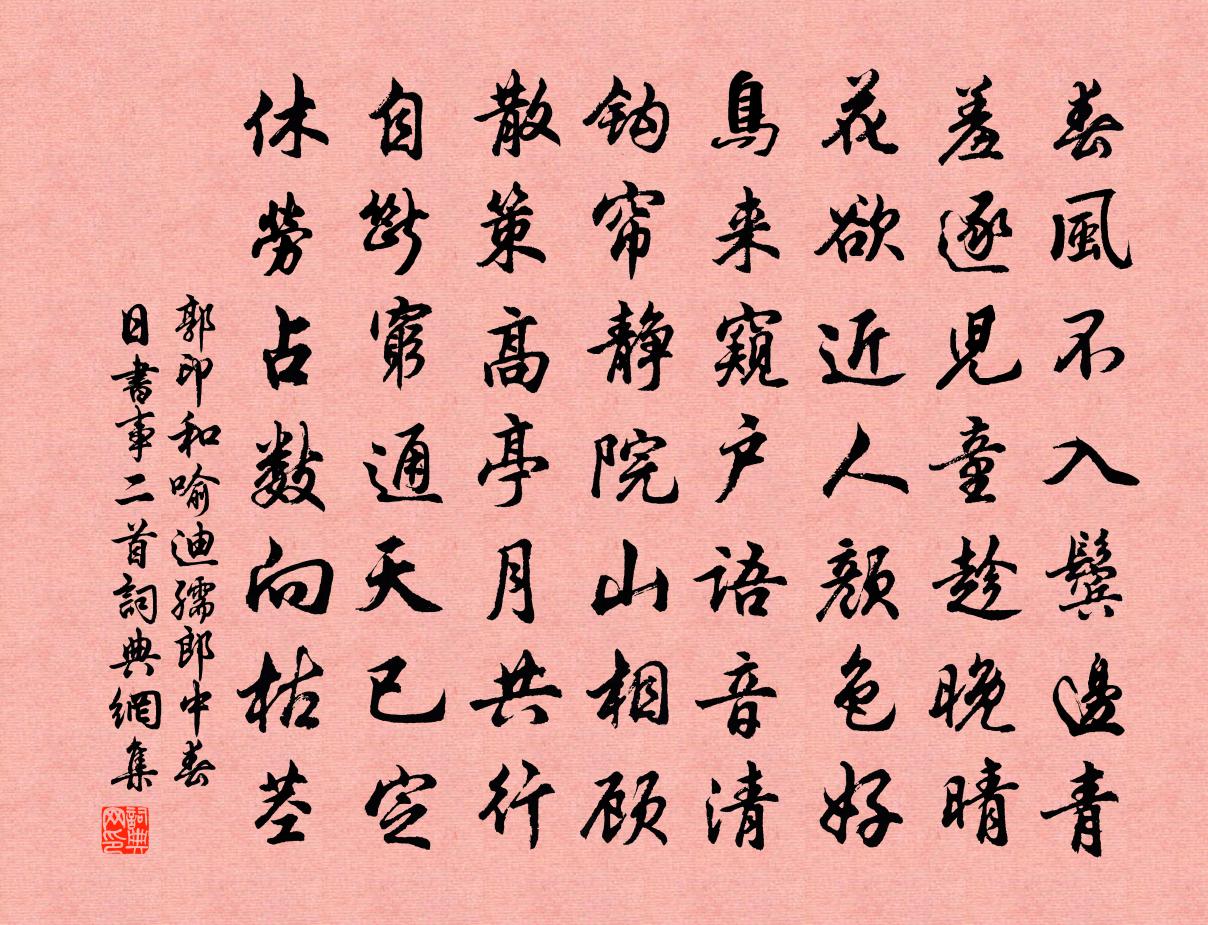 春風不入鬓邊青
羞逐児童趁晚晴
花欲近人顔色好
鳥来窺户語音清
鈎帘静院山相顾
散策高亭月共行
自斷窮通天已定
休勞占數向枯茎
郭印和喻迪孺郎中春
日書事二首詞典網集
詞典
网印